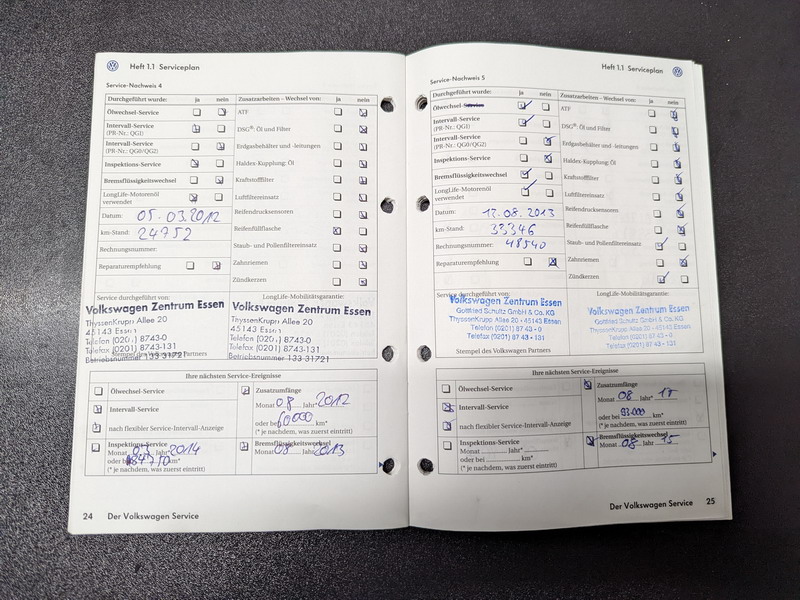 Heft 1.1 Serviceplan
Service-Nachweis 4
Durchgeführt wurde: ja nein
Zusatzarbeiten – Wechsel von: ja nein
Ölwechsel-Service
ATF
Intervall-Service
(PR-Nr.: QG1)
DSG®: Öl und Filter
Intervall-Service
(PR-Nr.: QG0/QG2)
Erdgasbehälter und -leitungen
Inspektions-Service
Haldex-Kupplung: Öl
Bremsflüssigkeitswechsel
Kraftstofffilter
LongLife-Motorenöl
verwendet
Luftfiltereinsatz
Datum: 05.03.2012
Reifendrucksensoren
km-Stand: 24752
Reifenfüllflasche
Rechnungsnummer:
Staub- und Pollenfiltereinsatz
Reparaturempfehlung
Zahnriemen
Zündkerzen
Service durchgeführt von:
LongLife-Mobilitätsgarantie:
Volkswagen Zentrum Essen
ThyssenKrupp Allee 20
45143 Essen
Telefon (0201) 8743-0
Telefax (0201) 8743-131
Betriebsnummer 133 31721
Stempel des Volkswagen Partners
Volkswagen Zentrum Essen
ThyssenKrupp Allee 20
45143 Essen
Telefon (0201) 8743-0
Telefax (0201) 8743-131
Betriebsnummer 133 31721
Ihre nächsten Service-Ereignisse
Ölwechsel-Service
Zusatzumfänge
Monat 08 Jahr* 2012
Intervall-Service
oder bei 60000 km*
nach flexibler Service-Intervall-Anzeige
(* je nachdem, was zuerst eintritt)
Inspektions-Service
Monat 03 Jahr* 2014
oder bei 84750 km*
(* je nachdem, was zuerst eintritt)
Bremsflüssigkeitswechsel
Monat 08 Jahr 2013
24 Der Volkswagen Service
Heft 1.1 Serviceplan
Service-Nachweis 5
Durchgeführt wurde: ja nein
Zusatzarbeiten – Wechsel von: ja nein
Ölwechsel-Service
ATF
Intervall-Service
(PR-Nr.: QG1)
DSG®: Öl und Filter
Intervall-Service
(PR-Nr.: QG0/QG2)
Erdgasbehälter und -leitungen
Inspektions-Service
Haldex-Kupplung: Öl
Bremsflüssigkeitswechsel
Kraftstofffilter
LongLife-Motorenöl
verwendet
Luftfiltereinsatz
Datum: 12.08.2013
Reifendrucksensoren
km-Stand: 33346
Reifenfüllflasche
Rechnungsnummer: 48540
Staub- und Pollenfiltereinsatz
Reparaturempfehlung
Zahnriemen
Zündkerzen
Service durchgeführt von:
LongLife-Mobilitätsgarantie:
Volkswagen Zentrum Essen
Gottfried Schultz GmbH & Co. KG
ThyssenKrupp Allee 20 · 45143 Essen
Telefon (0201) 87 43 - 0
Telefax (0201) 87 43 - 131
Stempel des Volkswagen Partners
Volkswagen Zentrum Essen
Gottfried Schultz GmbH & Co. KG
ThyssenKrupp Allee 20 · 45143 Essen
Telefon (0201) 87 43 - 0
Telefax (0201) 87 43 - 131
Ihre nächsten Service-Ereignisse
Ölwechsel-Service
Zusatzumfänge
Monat 08 Jahr*
Intervall-Service
oder bei 93000 km*
nach flexibler Service-Intervall-Anzeige
(* je nachdem, was zuerst eintritt)
Inspektions-Service
Monat Jahr*
oder bei km*
(* je nachdem, was zuerst eintritt)
Bremsflüssigkeitswechsel
Monat 08 Jahr 15
Der Volkswagen Service 25